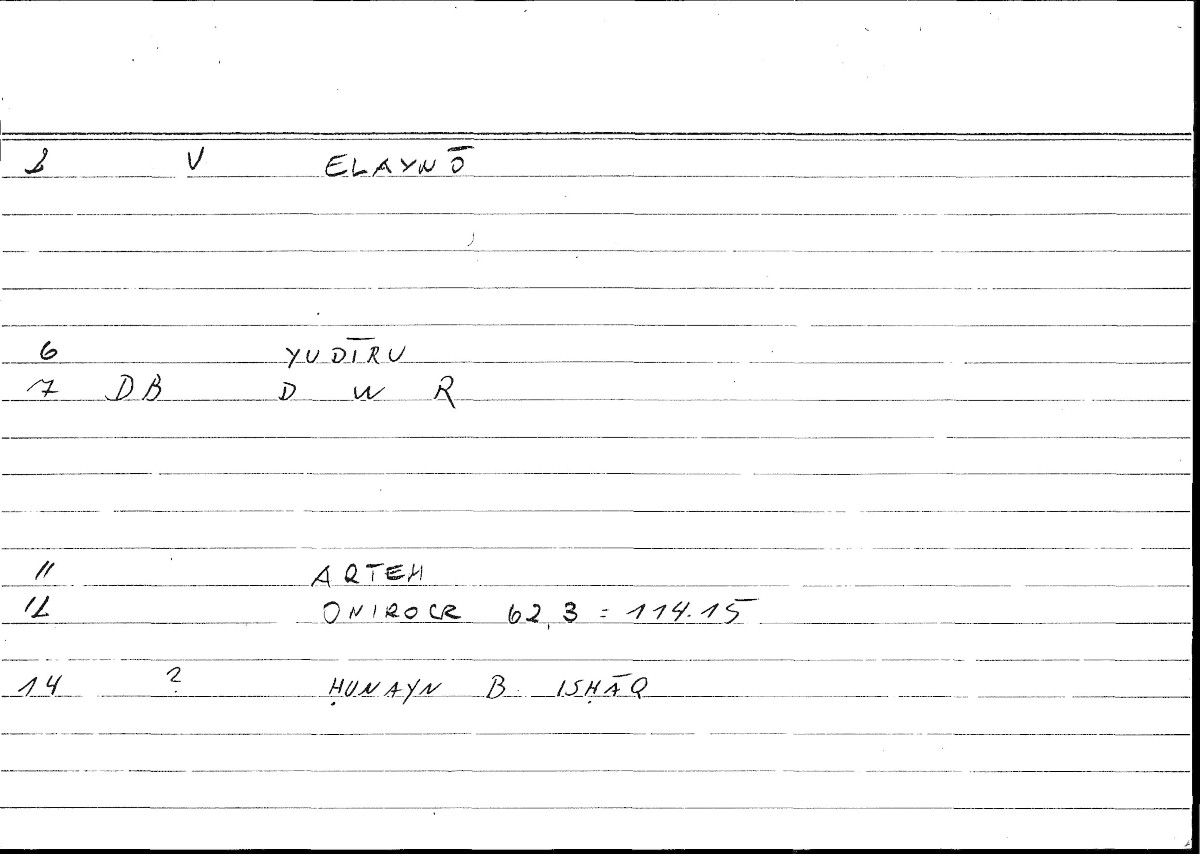 1 V ELAYNŌ
6 YUDĪRU
7 DB D W R
11 ARTEM
12 ONIROCR 62,3 = 114.15
14 ? ḤUNAYN B. ISḤĀQ